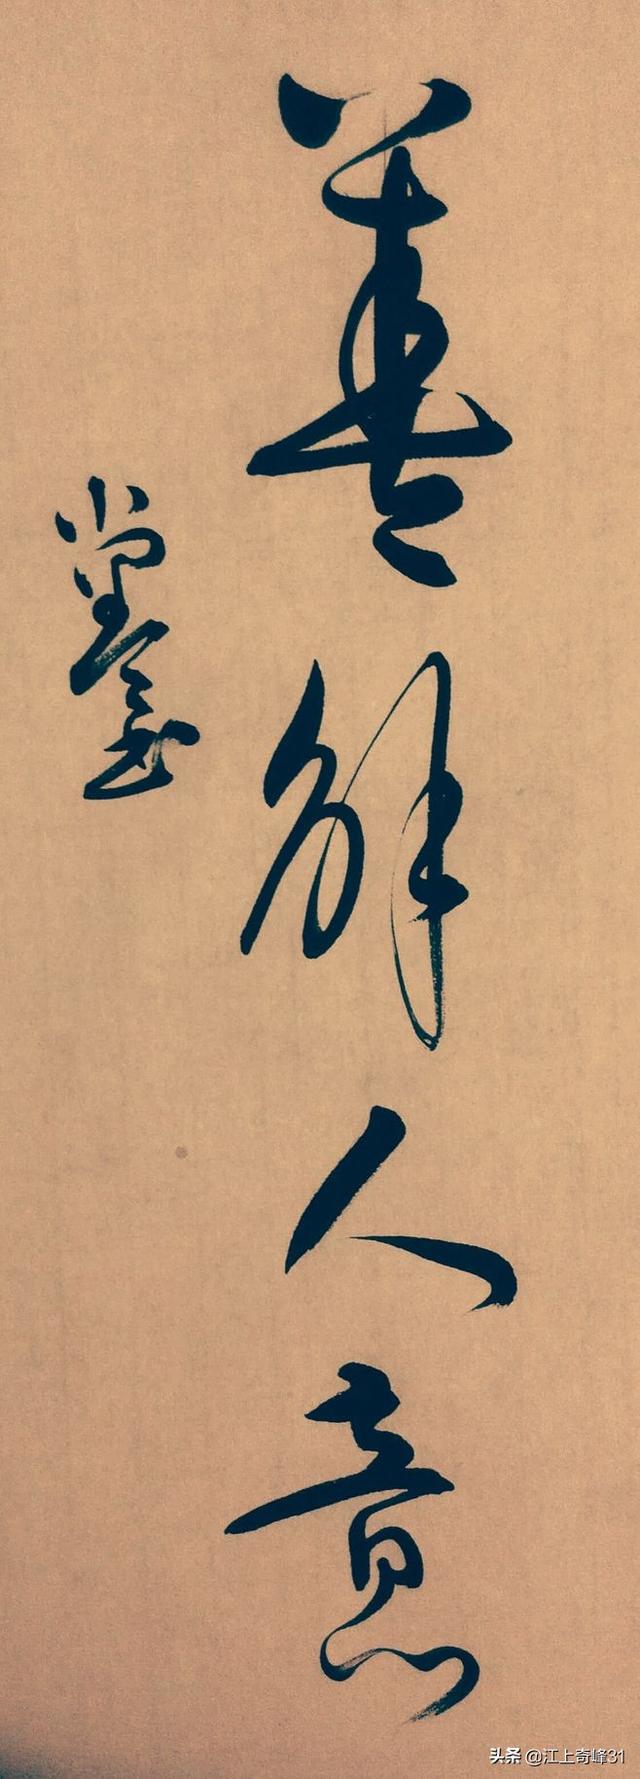 善解人意
头条 @江上奇峰31